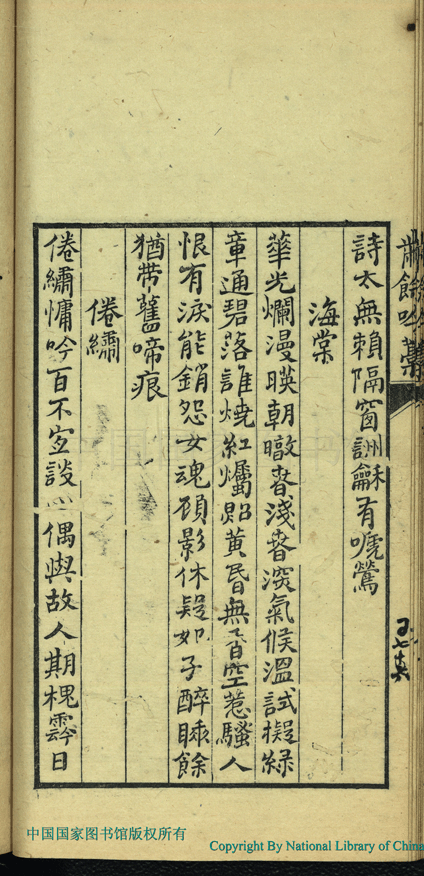 餘吟藁
詩太無賴隔窗詶龢有嗁鶯
海棠
華光爛漫暎朝暾春淺春深氣候溫試擬綠
章通碧落誰燒紅爥照黃昏無香空惹騷人
恨有淚能銷怨女魂顾影休疑妃子醉睡餘
猶帶舊啼痕
倦繡
倦繡慵吟百不宜談心偶與故人期槐霠日
中国国家图书馆版权所有
Copyright By National Library of China